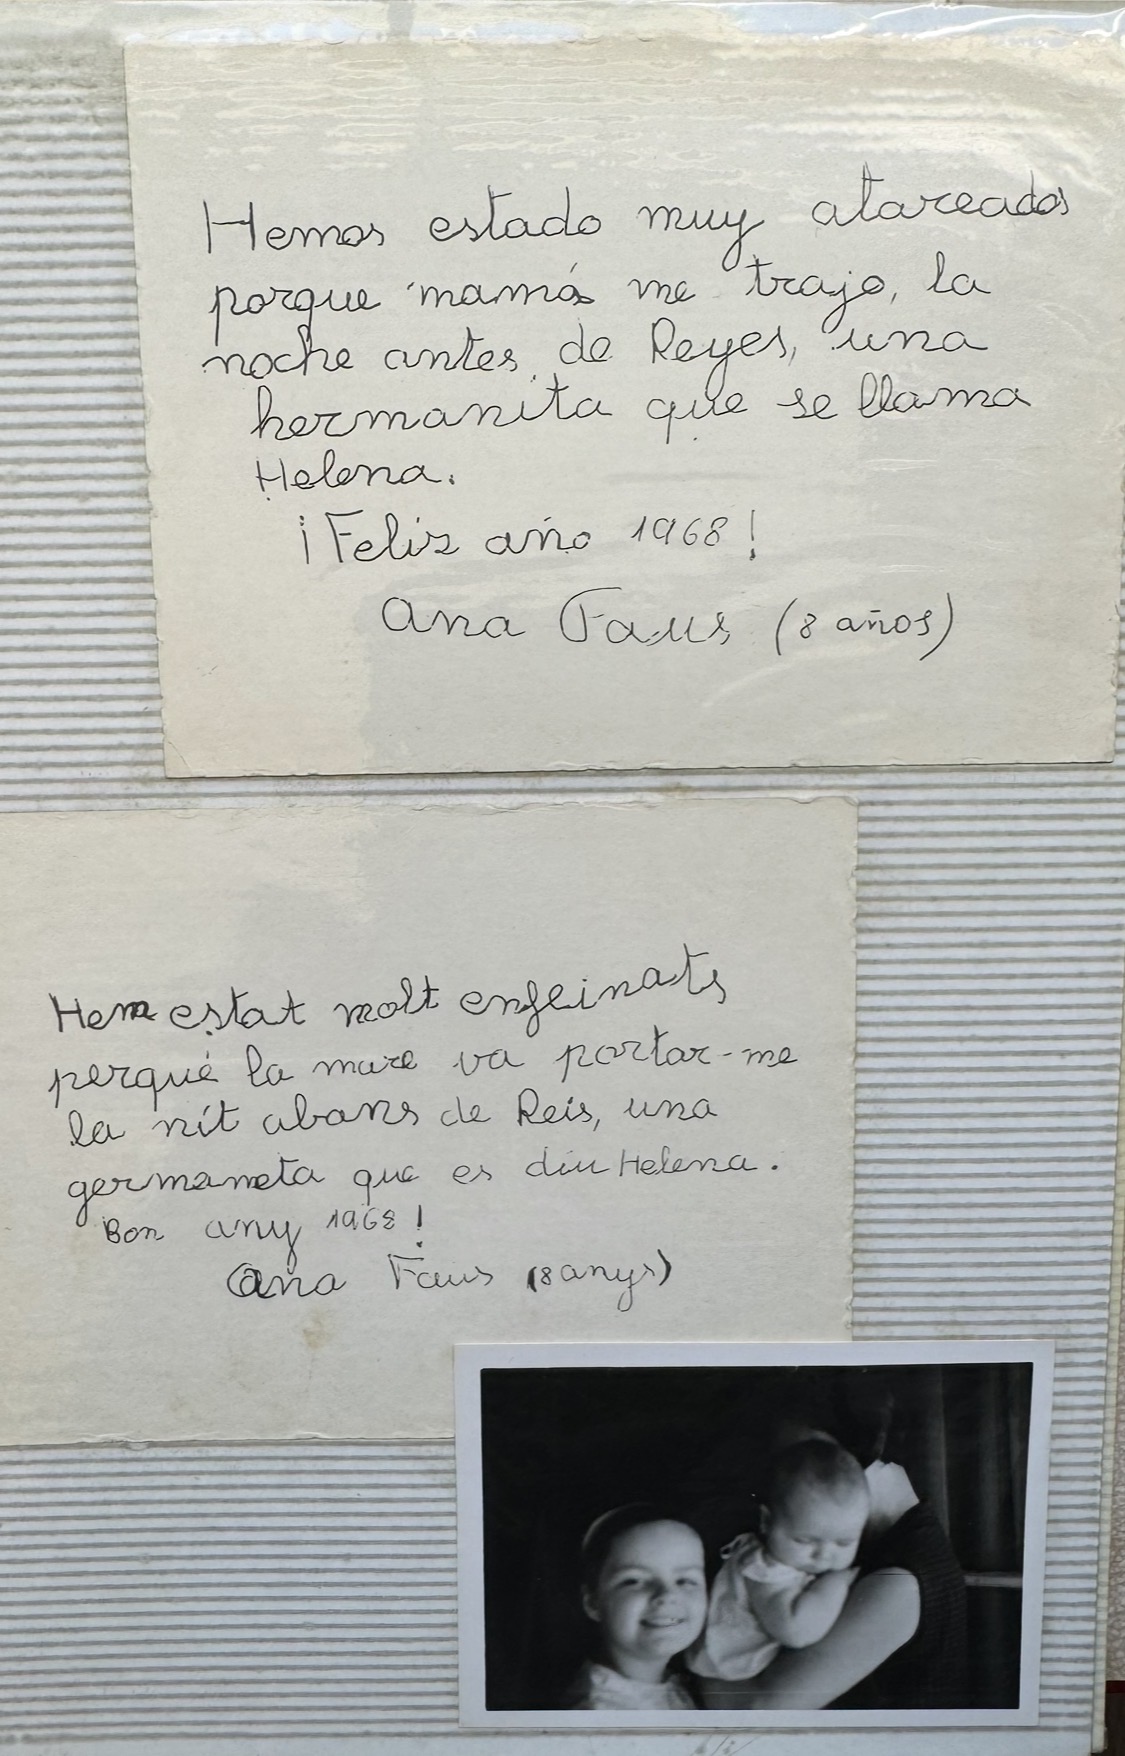 Hemos estado muy atareados
porque mamá me trajo, la
noche antes de Reyes, una
hermanita que se llama
Helena.
¡Feliz año 1968!
Ana Faus (8 años)
Hem estat molt enfeinats
perqué la mare va portar-me
la nit abans de Reis, una
germaneta que es diu Helena.
Bon any 1968!
Ana Faus (8 anys)